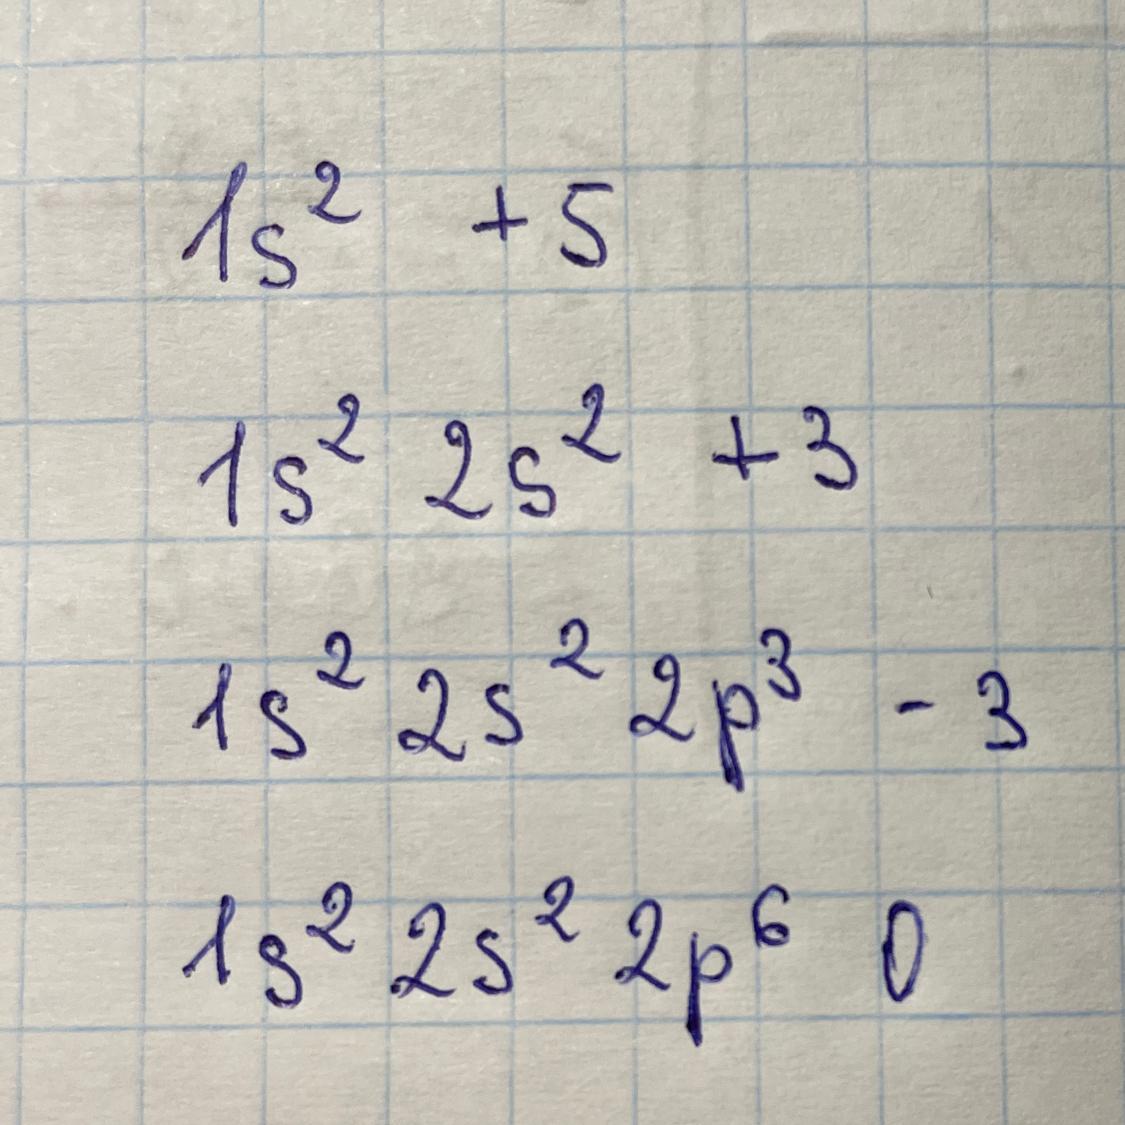 1s² +5
1s² 2s² +3
1s² 2s² 2p³ - 3
1s² 2s² 2p⁶ 0